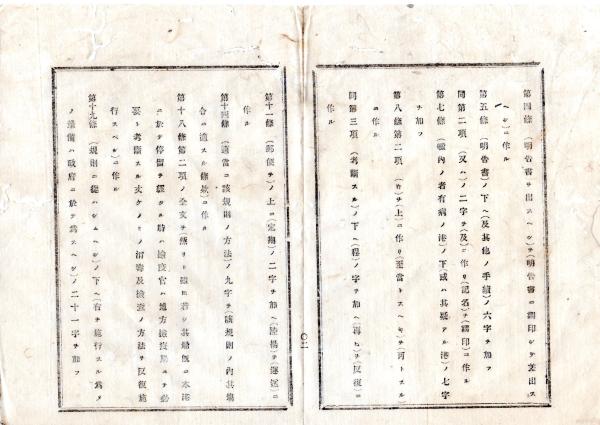 第四條（明告書ヲ出スヘシ）ヲ（明告書ニ調印シテ差出ス
ヘシ）ニ作ル
第五條（明告書）ノ下ヘ（及其他ノ手續）ノ六字ヲ加フ
同第二項（又ハ）ノ二字ヲ（及）ニ作リ（記名）ヲ（調印）ニ作ル
第七條（艦内ノ者有病ノ港）ノ下或ハ其疑アル港）ノ七字
ヲ加フ
第八條第二項（ヲ（上）ニ作リ（至當トスヘキヲ（可トスル）
ニ作ル
同第三項（考斷スル）ノ下ヘ（程）ノ字ヲ加ヘ（再ヒ）ヲ（反復）ニ
作ル
二〇
第十一條（郵便ヲ）ノ上ニ（定期）ノ二字ヲ加ヘ（陸揚）ヲ（遞送）ニ
作ル
第十四條（適當ニ該規則ノ方法）ノ九字ヲ（該規則ノ内其塲
合ニ適スル條欵）ニ作ル
第十八條第二項ノ全文ヲ（然リト雖モ若シ其船既ニ本港
ニ於テ停留ヲ經タル時ハ檢疫官ハ地方檢疫局ニテ必
要ト考斷スル丈ケノミノ消毒及檢査ノ方法ヲ反復施
行スベシ）ニ作ル
第十九條（規則ニ從ハシムヘシ）ノ下ヘ（右ヲ施行スル爲メ
ノ準備ハ政府ニ於テ爲スヘシ）ノ二十一字ヲ加フ